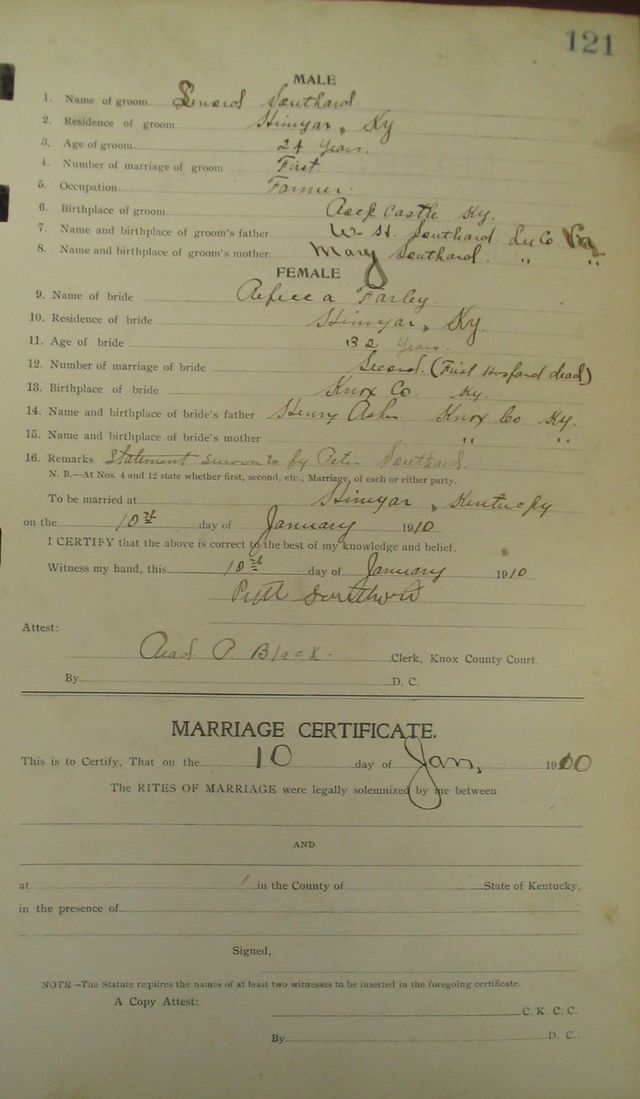 121
MALE
1. Name of groom Southard
2. Residence of groom Himyar, Ky
3. Age of groom 24 years.
4. Number of marriage of groom First.
5. Occupation Farmer.
6. Birthplace of groom Castle Ky.
7. Name and birthplace of groom's father W. H. Southard Lee Co Va
8. Name and birthplace of groom's mother Mary Southard. " "
FEMALE
9. Name of bride Farley.
10. Residence of bride Himyar, Ky.
11. Age of bride 32 years.
12. Number of marriage of bride Second. (First Husband dead)
13. Birthplace of bride Knox Co. Ky.
14. Name and birthplace of bride's father Henry Knox Co Ky.
15. Name and birthplace of bride's mother " "
16. Remarks Statement sworn to by Southard.
N. B.—At Nos. 4 and 12 state whether first, second, etc., Marriage, of each or either party.
To be married at Himyar, Kentucky
on the 10th day of January 1910
I CERTIFY that the above is correct to the best of my knowledge and belief.
Witness my hand, this 10th day of January 1910
Attest:
Read P. Black. Clerk, Knox County Court.
By D. C.
MARRIAGE CERTIFICATE.
This is to Certify, That on the 10 day of Jan, 19
The RITES OF MARRIAGE were legally solemnized by me between
AND
at in the County of State of Kentucky,
in the presence of
Signed,
NOTE—The Statute requires the names of at least two witnesses to be inserted in the foregoing certificate.
A Copy Attest:
C. K. C. C.
By D. C.